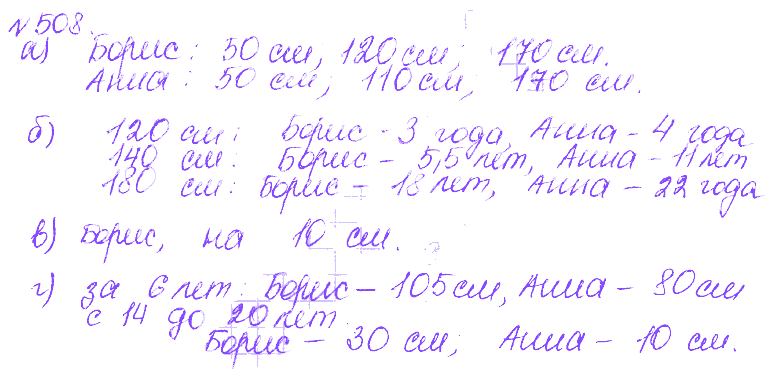 № 508.
а) Борис: 50 см, 120 см; 170 см.
Анна: 50 см; 110 см; 170 см.
б) 120 см: Борис - 3 года, Анна - 4 года
140 см: Борис - 5,5 лет, Анна - 11 лет
180 см: Борис - 18 лет, Анна - 22 года
в) Борис, на 10 см.
г) за 6 лет: Борис - 105 см, Анна - 80 см
с 14 до 20 лет
Борис - 30 см; Анна - 10 см.